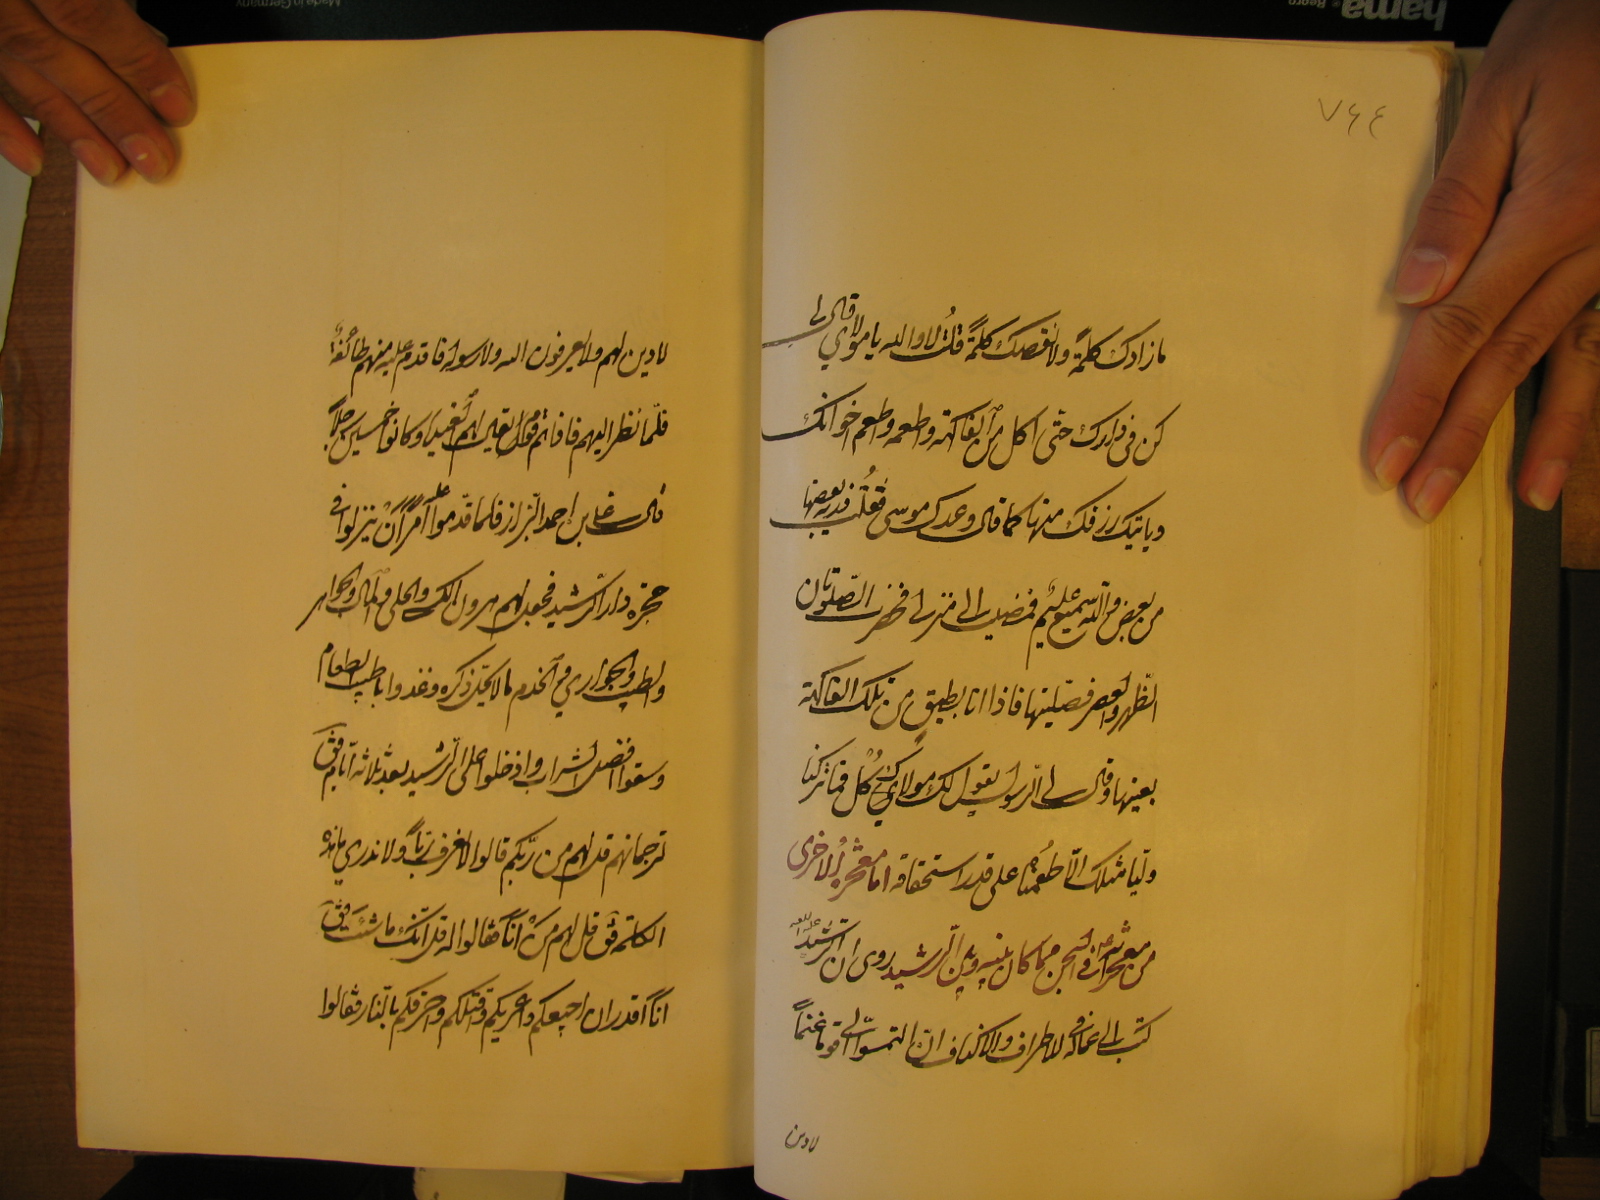 ٧٤٤
مازادك كلمةً ولا نقصك كلمةً قلتُ لا والله يا مولاي قال لي
كن في دارك حتّى اكل من الفاكهة واطعمه واطعم اخوانك
وياتيك رزقك منها كما قال وعدك موسى فقلتُ ذرية بعضها
من بعض والله سميع عليم فمضيت الى منزلي فحضرت الصّلوتان
الظّهر والعصر فصلّيتها فاذا انا بطبق من تلك الفاكهة
بعينها وقال لي الرسول يقول لك مولاي كُل فما تركنا
وليّا مثلك الّا اطعمنا على قدر استحقاقه اما معجزه الاخرى
من معجزاته في السجن مما كان بينه وبين الرشيد روى ان الرشيد لعنه الله
كتب الى عماله في الاطراف والاكناف ان التمسوا لي قوما غتماً
لا دين
لا دين لهم ولا يعرفون الله ولا رسوله فاقدم عليه منهم طائفة
فلمّا نظر اليهم فاذا هم قوم يقال لهم وكانوا خمسين رجلاً
قال علي بن احمد البزاز فلما قدموا عليه امر ان ينزلوا في
حجرة دار الرشيد فحمل لهم هرون الكسي والحلي والمال والجواهر
والطيب والجواري والخدم ما لا يحلّ ذكره وغدوا باطيب الطعام
وسقوا افضل الشراب وادخلوا على الرشيد بعد ثلاثة ايام فق
لترجمانهم قل لهم من ربّكم قالوا لا نعرف ربّاً ولا ندري ما هذه
الكلمة فق قل لهم من انا فقالوا له قل انّك ما شئت فق
انا اقدر ان اجيعكم واعريكم واقتلكم واحرقكم بالنار فقالوا
hama
Made in Germany